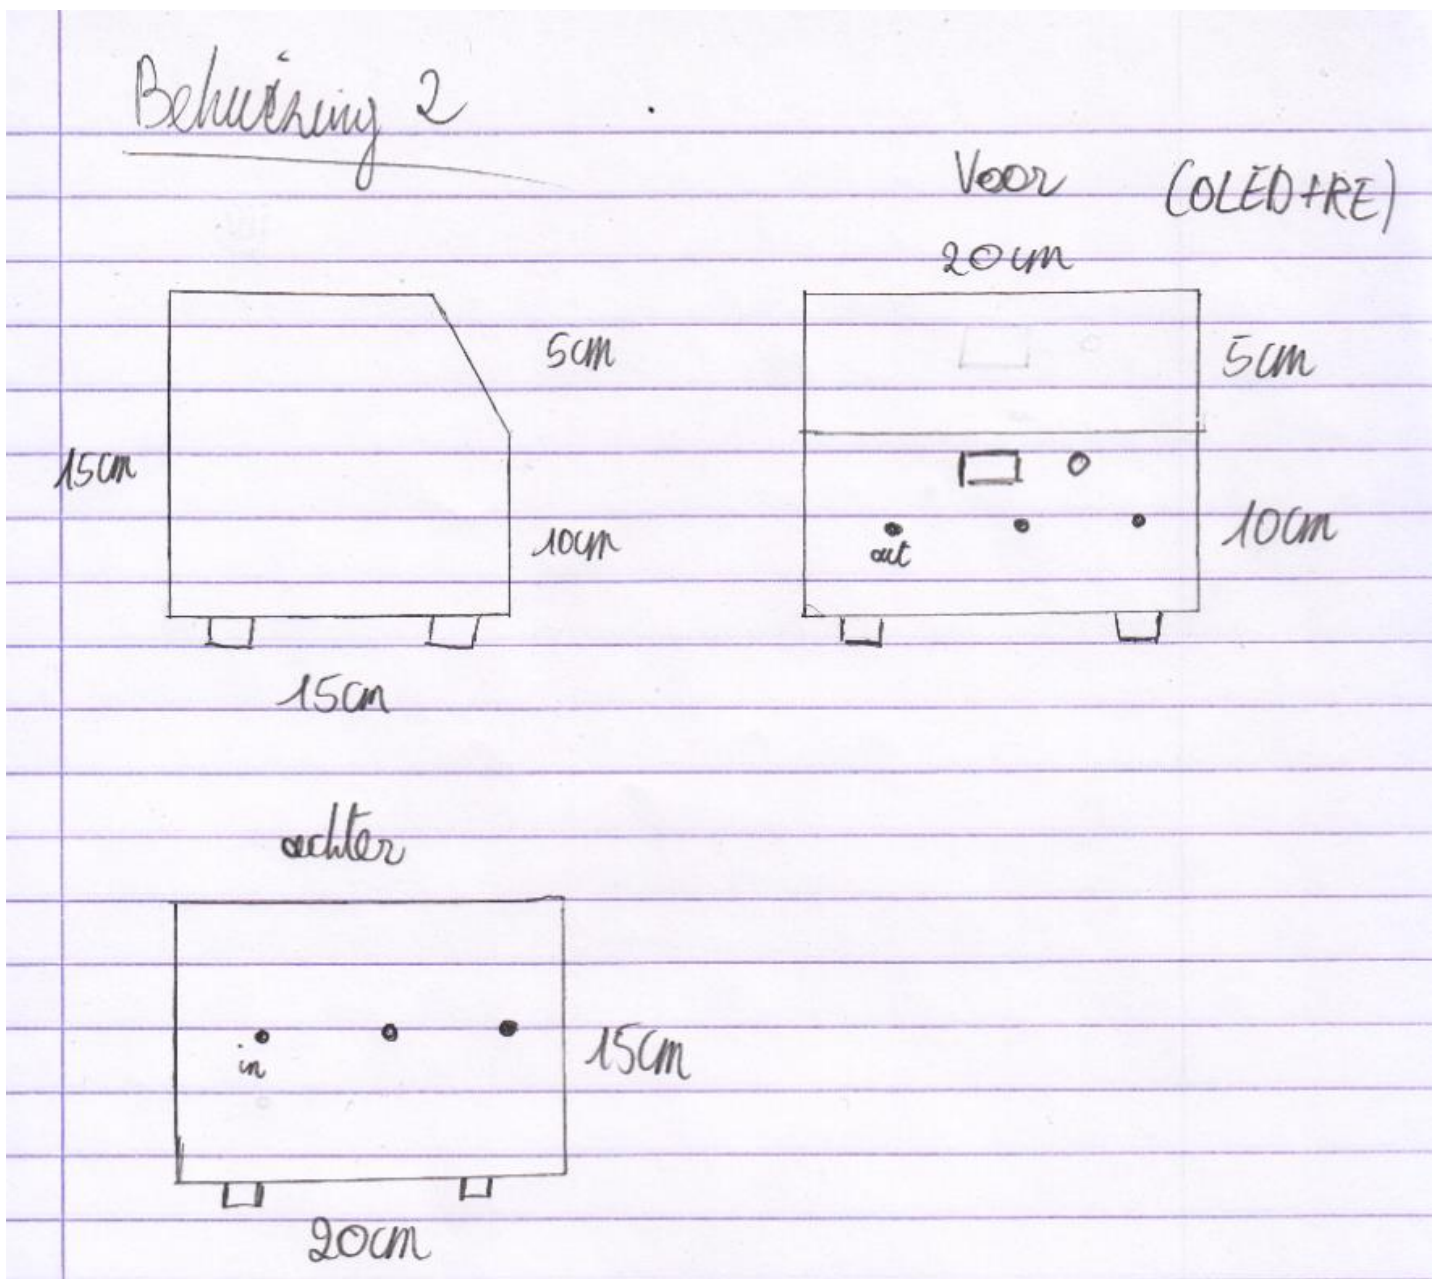 Behuizing 2
Voor (OLED+RE)
20cm
5cm
15cm
10cm
15cm
5cm
out
10cm
achter
in
15cm
20cm